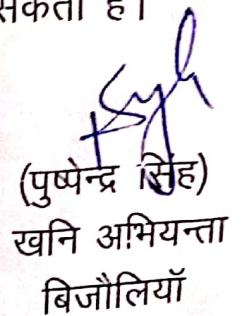 सकता है।
(पुष्पेन्द्र सिंह)
खनि अभियन्ता
बिजौलियॉ